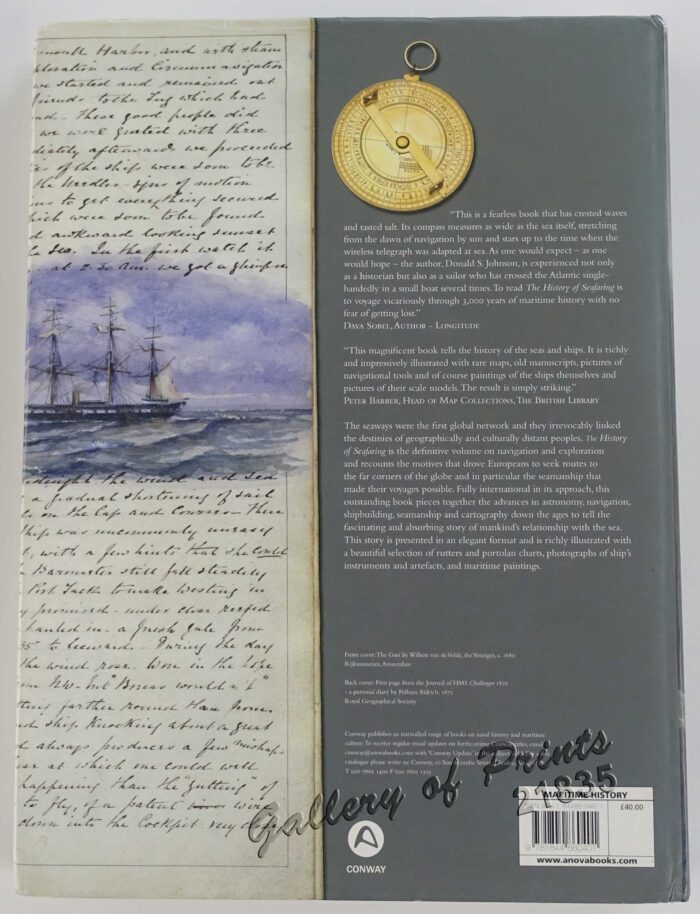 mouth Harbor, and with steam
ploration and Circumnavigation
we started and remained out
friends to the Tug which had
and - These good people did
we were greeted with three
diately afterward we proceeded
of the ship were soon to be
the Needles - signs of motion
to get everything secured
hich were soon to be found
d awkward looking sunset
In the first watch it
at 2.30 a.m. we got a glimpse
the wind and sea
a gradual shortening of sail
on the Cap and Courses - The
ship was uncommonly uneasy
, with a few hints that she could
Barometer still fell steadily
Port Tack to make Westing in
promised - under close reefed
hauled in - a fresh gale from
to leeward - During the day
the wind rose. Wore in the hope
"Boreas would
farther round Ham from
ship Knocking about a great
d always produces a few mishaps
at which one could well
happening than the "gutting" of
to fly, of a patent wire
down into the Cockpit very
"This is a fearless book that has crested waves
and tasted salt. Its compass measures as wide as the sea itself, stretching
from the dawn of navigation by sun and stars up to the time when the
wireless telegraph was adapted at sea. As one would expect – as one
would hope – the author, Donald S. Johnson, is experienced not only
as a historian but also as a sailor who has crossed the Atlantic single-
handedly in a small boat several times. To read The History of Seafaring is
to voyage vicariously through 3,000 years of maritime history with no
fear of getting lost."
Dava Sobel, Author – Longitude
"This magnificent book tells the history of the seas and ships. It is richly
and impressively illustrated with rare maps, old manuscripts, pictures of
navigational tools and of course paintings of the ships themselves and
pictures of their scale models. The result is simply striking."
Peter Barber, Head of Map Collections, The British Library
The seaways were the first global network and they irrevocably linked
the destinies of geographically and culturally distant peoples. The History
of Seafaring is the definitive volume on navigation and exploration
and recounts the motives that drove Europeans to seek routes to
the far corners of the globe and in particular the seamanship that
made their voyages possible. Fully international in its approach, this
outstanding book pieces together the advances in astronomy, navigation,
shipbuilding, seamanship and cartography down the ages to tell the
fascinating and absorbing story of mankind's relationship with the sea.
This story is presented in an elegant format and is richly illustrated with
a beautiful selection of rutters and portolan charts, photographs of ship's
instruments and artefacts, and maritime paintings.
Front cover: The Gust by Willem van de Velde, the Younger, c. 1680
Rijksmuseum, Amsterdam
Back cover: First page from the Journal of HMS Challenger 1872
– a personal diary by Pelham Aldrich, 1872
Royal Geographical Society
Conway publishes an unrivalled range of books on naval history and maritime
culture. To receive regular email updates on forthcoming titles, email
conway@anovabooks.com with 'Conway Update' in
catalogue please write to: Conway, 10 Southcombe Street, London,
T 020 7605 1400 F 020 7605 1305
Gallery of Prints
21835
CONWAY
MARITIME HISTORY
£40.00
9 781844 860401
www.anovabooks.com